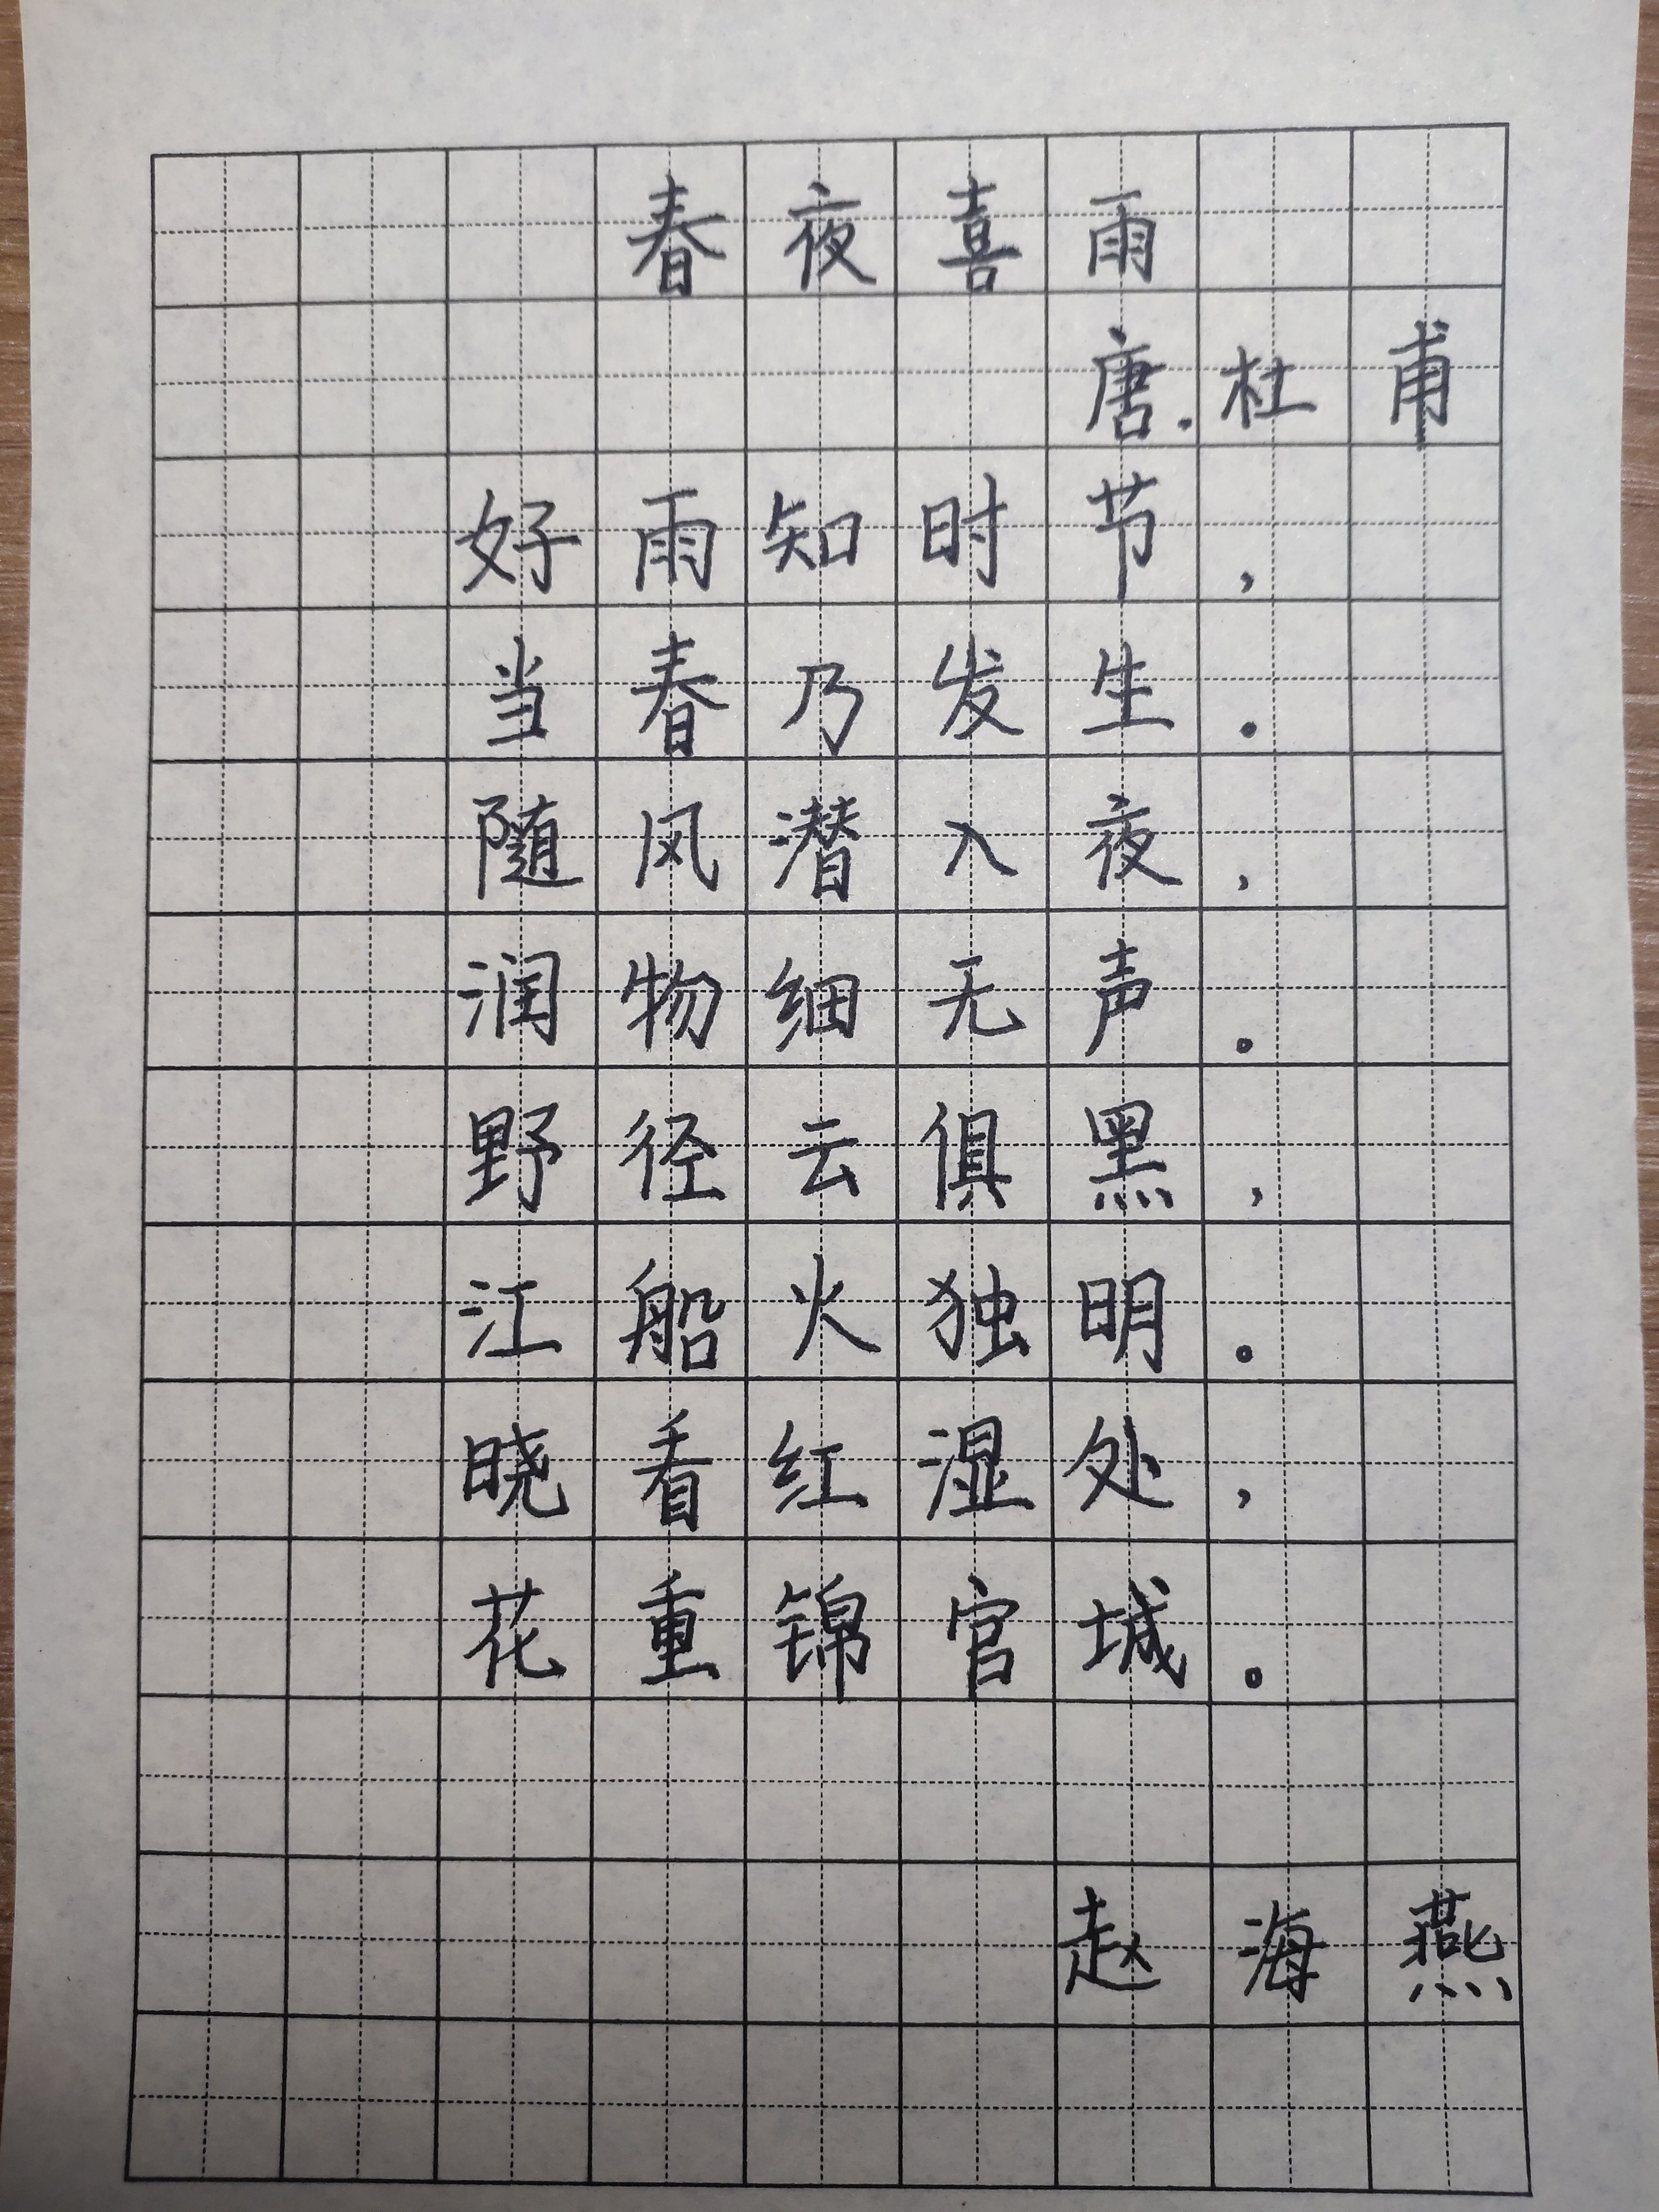 春夜喜雨
唐.杜甫
好雨知时节，
当春乃发生。
随风潜入夜，
润物细无声。
野径云俱黑，
江船火独明。
晓看红湿处，
花重锦官城。
赵海燕